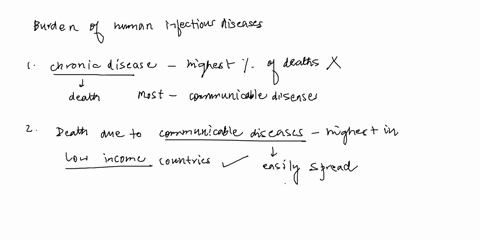 Burden of human infectious diseases
1. chronic disease - highest % of deaths X
death most - communicable diseases
2. Death due to communicable diseases - highest in
low income countries ✓ easily spread